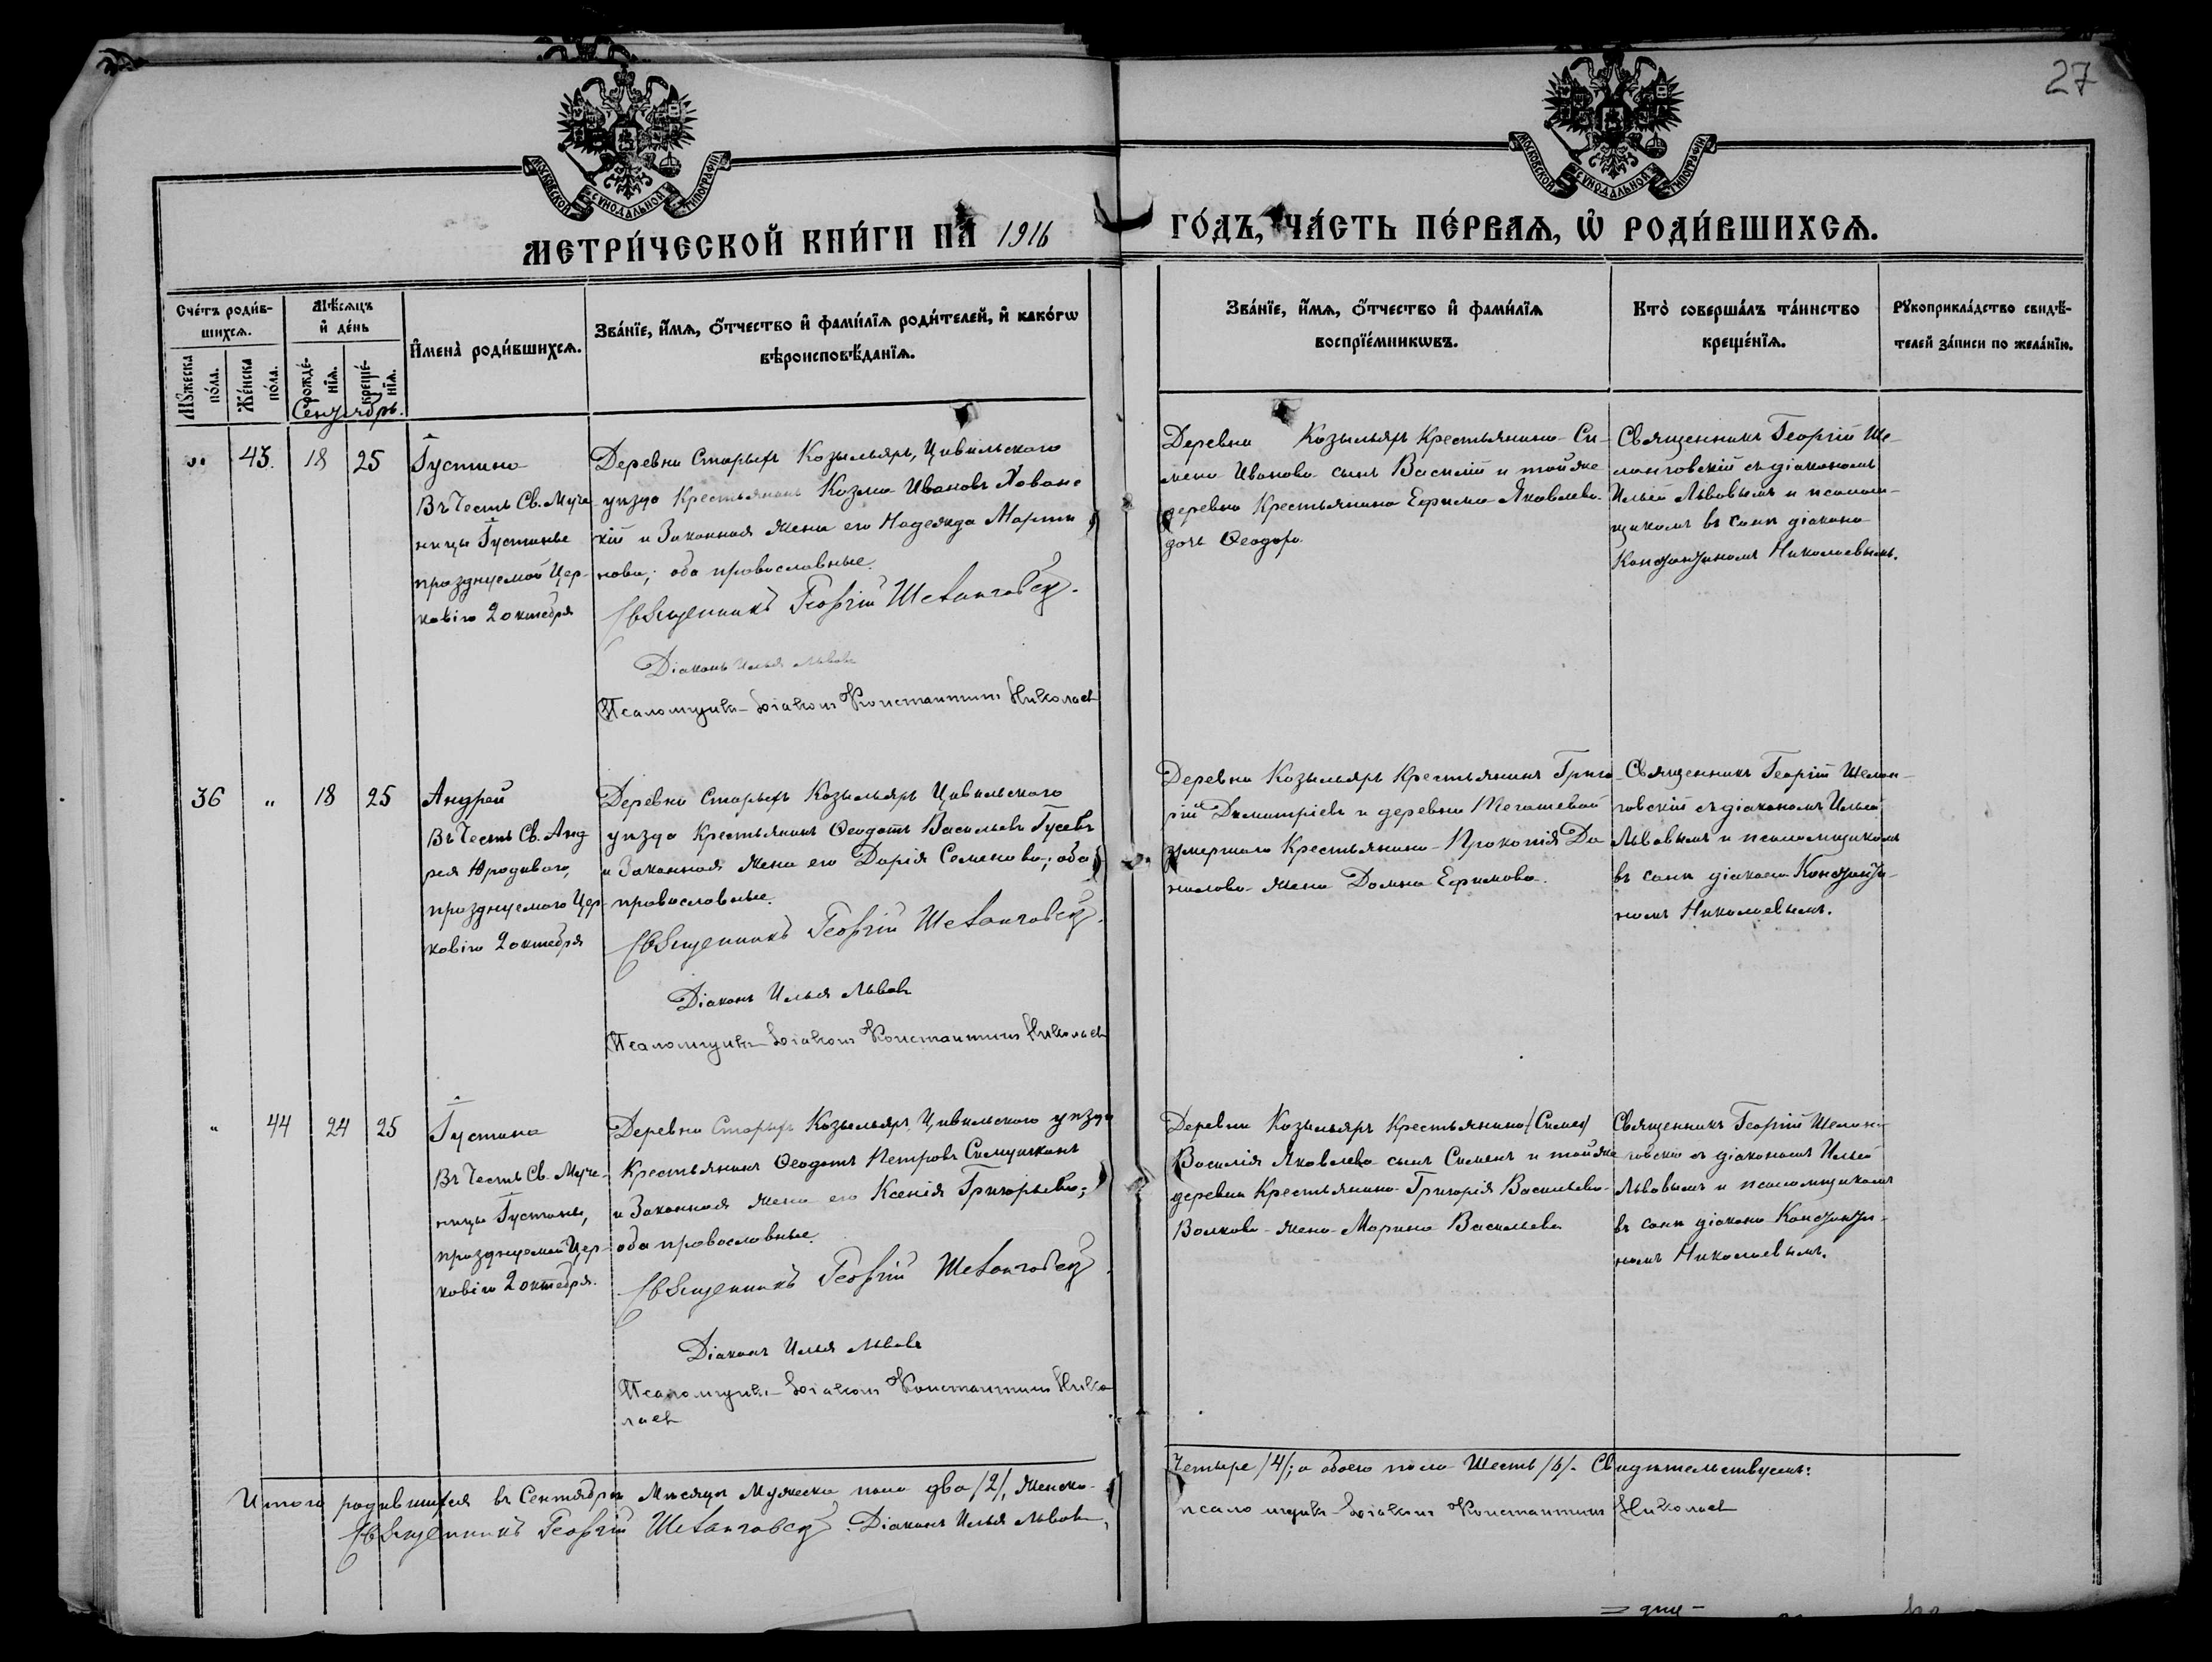 27
МОСКОВСКОЙ СѴНОДАЛЬНОЙ ТИПОГРАФІИ
МОСКОВСКОЙ СѴНОДАЛЬНОЙ ТИПОГРАФІИ
МЕТРИ́ЧЕСКОЙ КНИ́ГИ НА 1916
ГО́ДЪ, ЧА́СТЬ ПЕ́РВАѦ, Ѡ҆ РОДИ́ВШИХСѦ.
Сче́тъ роди́в-
шихсѧ.
Мꙋ́жеска по́ла.
Же́нска по́ла.
Мѣ́сѧцъ
и҆ де́нь
рожде́-нїѧ.
креще́-нїѧ.
И҆мена̀ роди́вшихсѧ.
Зва́нїе, и҆́мѧ, ѻ҆́тчество и҆ фами́лїѧ роди́телей, и҆ како́гѡ
вѣроисповѣ́данїѧ.
Зва́нїе, и҆́мѧ, ѻ҆́тчество и҆ фами́лїѧ
воспрїе́мникѡвъ.
Кто̀ соверша́лъ та́инство
креще́нїѧ.
Рꙋкоприкла́дство свидѣ́-
телей за́писи по жела́нїю.
Сентябрь.
" 43. 18 25
Іустина
Въ Честь Св. Муче-
ницы Іустины
празднуемой Цер-
ковію 2 октября
Деревни Старыхъ Козыльяръ, Цивильского
уѣзда Крестьянинъ Козма Ивановъ Хованс
кій и Законная жена его Надежда Марти
нова; оба православные.
Священникъ Георгій Шеланговскій.
Діаконъ Илья Львовъ
Псаломщикъ-Діаконъ Константинъ Николаевъ
Деревни Козыльяръ Крестьянина Си-
мена Иванова сынъ Василій и той же
деревни Крестьянина Ефима Яковлева
дочь Ѳеодора
Священникъ Георгій Ше-
ланговскій съ діакономъ
Ильей Львовымъ и псалом-
щикомъ въ санѣ діакона
Константиномъ Николаевымъ.
36 " 18 25
Андрей
Въ Честь Св. Анд
рея Юродивого,
празднуемого Цер-
ковію 2 октября
Деревни Старыхъ Козыльяръ Цивильского
уѣзда Крестьянинъ Ѳеодотъ Васильевъ Гусевъ
и Законная жена его Дарія Семенова; оба
православные.
Священникъ Георгій Шеланговскій.
Діаконъ Илья Львовъ
Псаломщикъ-Діаконъ Константинъ Николаевъ
Деревни Козыльяръ Крестьянинъ Григо
рій Димитріевъ и деревни Тегашевой
умершаго Крестьянина Прокопія Да
нилова жена Домна Ефимова.
Священникъ Георгій Шелан-
говскій съ діакономъ Ильей
Львовымъ и псаломщикомъ
въ санѣ діакона Константи-
номъ Николаевымъ.
" 44 24 25
Іустина
Въ Честь Св. Муче-
ницы Іустины,
празднуемой Цер-
ковію 2 октября.
Деревни Старыхъ Козыльяръ Цивильского уѣзда
Крестьянинъ Ѳеодотъ Петровъ
и Законная жена его Ксенія Григорьева;
оба православные.
Священникъ Георгій Шеланговскій.
Діаконъ Илья Львовъ
Псаломщикъ-Діаконъ Константинъ Нико
лаевъ
Деревни Козыльяръ Крестьянина
Василія Яковлева сынъ Сименъ и той же
деревни Крестьянина Григорія Васильева
Волкова жена Марина Васильева
Священникъ Георгій Шелан-
говскій съ діакономъ Ильей
Львовымъ и псаломщикомъ
въ санѣ діакона Константи-
номъ Николаевымъ.
Итого родившихся въ Сентябрѣ Мѣсяцѣ Мужеска пола два /2/, женска
Священникъ Георгій Шеланговскій. Діаконъ Илья Львовъ,
Четыре /4/; а обоего пола Шесть /6/. Свидѣтельствуемъ:
псаломщикъ-Діаконъ Константинъ Николаевъ